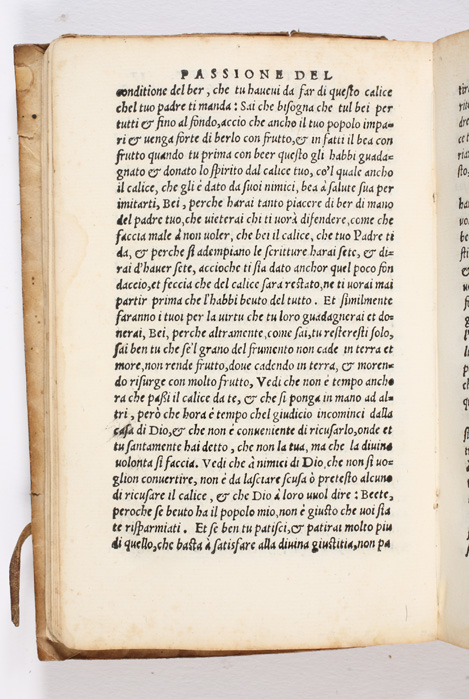 PASSIONE DEL
conditione del ber, che tu haueui da far di questo calice
chel tuo padre ti manda: Sai che bisogna che tul bei per
tutti & fino al fondo, accio che ancho il tuo popolo impa-
ri & uenga forte di berlo con frutto, & in fatti il bea con
frutto quando tu prima con beer questo gli habbi guada-
gnato & donato lo spirito dal calice tuo, co'l quale ancho
il calice, che gli è dato da suoi nimici, bea à salute sua per
imitarti, Bei, perche harai tanto piacere di ber di mano
del padre tuo, che uieterai chi ti uorà difendere, come che
faccia male à non uoler, che bei il calice, che tuo Padre ti
da, & perche si adempiano le scritture harai sete, & di-
rai d'hauer sete, accioche ti sia dato anchor quel poco fon
daccio, et feccia che del calice sara restato, ne ti uorai mai
partir prima che l'habbi beuto del tutto. Et similmente
faranno i tuoi per la uirtu che tu loro guadagnerai et do-
nerai, Bei, perche altramente, come sai, tu resteresti solo,
sai ben tu che se'l grano del frumento non cade in terra et
more, non rende frutto, doue cadendo in terra, & moren-
do risurge con molto frutto, Vedi che non è tempo ancho
ra che passi il calice da te, & che si ponga in mano ad al-
tri, però che hora è tempo chel giudicio incominci dalla
casa di Dio, & che non è conueniente di ricusarlo, onde et
tu santamente hai detto, che non la tua, ma che la diuina
uolonta si faccia. Vedi che à nimici di Dio, che non si uo-
glion conuertire, non è da lasciare scusa ò pretesto alcuno
di ricusare il calice, & che Dio à loro uuol dire: Beete,
peroche se beuto ha il popolo mio, non è giusto che uoi sia
te risparmiati. Et se ben tu patisci, & patirai molto piu
di quello, che basta à satisfare alla diuina giustitia, non pa